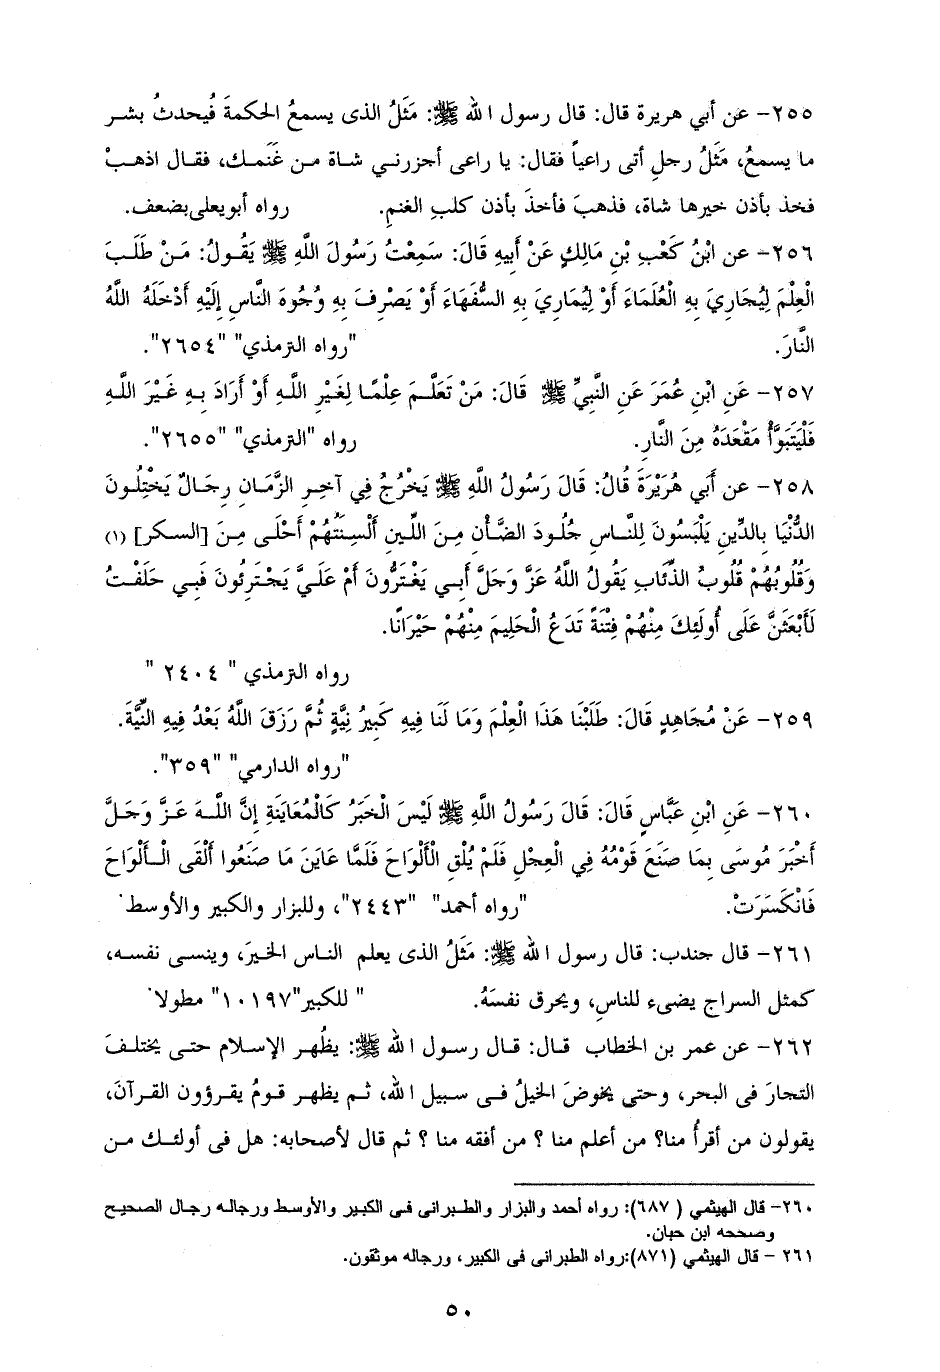 ٢٥٥- عن أبي هريرة قال: قال رسول الله ﷺ: مَثَلُ الذى يسمعُ الحكمةَ فُيحدثُ بشر
ما يسمعُ، مَثَلُ رجلٍ أتى راعياً فقال: يا راعى أجزرني شاة من غَنَمك، فقال اذهبْ
فخذ بأذن خيرها شاة، فذهبَ فأخذَ بأذن كلبِ الغنمِ. رواه أبويعلى بضعف.
٢٥٦- عن ابْنُ كَعْبِ بْنِ مَالِكٍ عَنْ أَبِيهِ قَالَ: سَمِعْتُ رَسُولَ اللَّهِ ﷺ يَقُولُ: مَنْ طَلَبَ
الْعِلْمَ لِيُجَارِيَ بِهِ الْعُلَمَاءَ أَوْ لِيُمَارِيَ بِهِ السُّفَهَاءَ أَوْ يَصْرِفَ بِهِ وُجُوهَ النَّاسِ إِلَيْهِ أَدْخَلَهُ اللَّهُ
النَّارَ. "رواه الترمذي" "٢٦٥٤".
٢٥٧- عَنِ ابْنِ عُمَرَ عَنِ النَّبِيِّ ﷺ قَالَ: مَنْ تَعَلَّمَ عِلْمًا لِغَيْرِ اللَّهِ أَوْ أَرَادَ بِهِ غَيْرَ اللَّهِ
فَلْيَتَبَوَّأْ مَقْعَدَهُ مِنَ النَّارِ. رواه "الترمذي" "٢٦٥٥".
٢٥٨- عن أَبي هُرَيْرَةَ قُالُ: قَالَ رَسُولُ اللَّهِ ﷺ يَخْرُجُ فِي آخِرِ الزَّمَانِ رِجَالٌ يَخْتِلُونَ
الدُّنْيَا بِالدِّينِ يَلْبَسُونَ لِلنَّاسِ جُلُودَ الضَّأْنِ مِنَ اللِّينِ أَلْسِنَتُهُمْ أَحْلَى مِنَ [السكر] (١)
وَقُلُوبُهُمْ قُلُوبُ الذِّئَابِ يَقُولُ اللَّهُ عَزَّ وَجَلَّ أَبِي يَغْتَرُّونَ أَمْ عَلَيَّ يَجْتَرِئُونَ فَبِي حَلَفْتُ
لَأَبْعَثَنَّ عَلَى أُولَئِكَ مِنْهُمْ فِتْنَةً تَدَعُ الْحَلِيمَ مِنْهُمْ حَيْرَانًا.
رواه الترمذي " ٢٤٠٤ "
٢٥٩- عَنْ مُجَاهِدٍ قَالَ: طَلَبْنَا هَذَا الْعِلْمَ وَمَا لَنَا فِيهِ كَبِيرُ نِيَّةٍ ثُمَّ رَزَقَ اللَّهُ بَعْدُ فِيهِ النِّيَّةَ.
"رواه الدارمي" "٣٥٩".
٢٦٠- عَنِ ابْنِ عَبَّاسٍ قَالَ: قَالَ رَسُولُ اللَّهِ ﷺ لَيْسَ الْخَبَرُ كَالْمُعَايَنَةِ إِنَّ اللَّهَ عَزَّ وَجَلَّ
أَخْبَرَ مُوسَى بِمَا صَنَعَ قَوْمُهُ فِي الْعِجْلِ فَلَمْ يُلْقِ الْأَلْوَاحَ فَلَمَّا عَايَنَ مَا صَنَعُوا أَلْقَى الْأَلْوَاحَ
فَانْكَسَرَتْ. "رواه أحمد" "٢٤٤٣"، وللبزار والكبير والأوسط.
٢٦١- قال جندب: قال رسول الله ﷺ: مَثَلُ الذى يعلم الناس الخيرَ، وينسى نفسه،
كمثل السراج يضىء للناسِ، ويحرق نفسَهُ. " للكبير"١٠١٩٧" مطولا.
٢٦٢- عن عمر بن الخطاب قال: قال رسول الله ﷺ: يظُهر الإسلام حتى يختلفَ
التجارَ فى البحر، وحتى يخوضَ الخيلُ فى سبيل الله، ثم يظهر قومُ يقرؤون القرآنَ،
يقولون من أقرأُ منا؟ من أعلم منا ؟ من أفقه منا ؟ ثم قال لأصحابه: هل فى أولئك من
٢٦٠- قال الهيثمي ( ٦٨٧): رواه أحمد والبزار والطبرانى فى الكبير والأوسط ورجاله رجال الصحيح
وصححه ابن حبان.
٢٦١ - قال الهيثمي (٨٧١):رواه الطبرانى فى الكبير، ورجاله موثقون.
٥٠